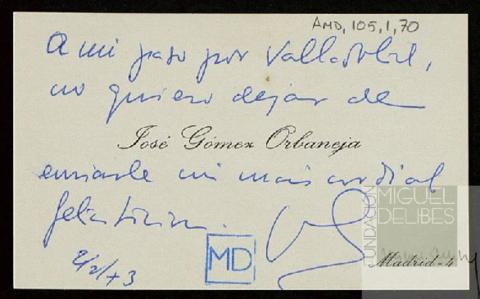 AMD, 105, 1, 70
A mi paso por Valladolid,
no quiero dejar de
José Gómez Orbaneja
enviarle mi más cordial
felicitación.
2/2/73
MD
Madrid-4
FUNDACIÓN
MIGUEL
DELIBES